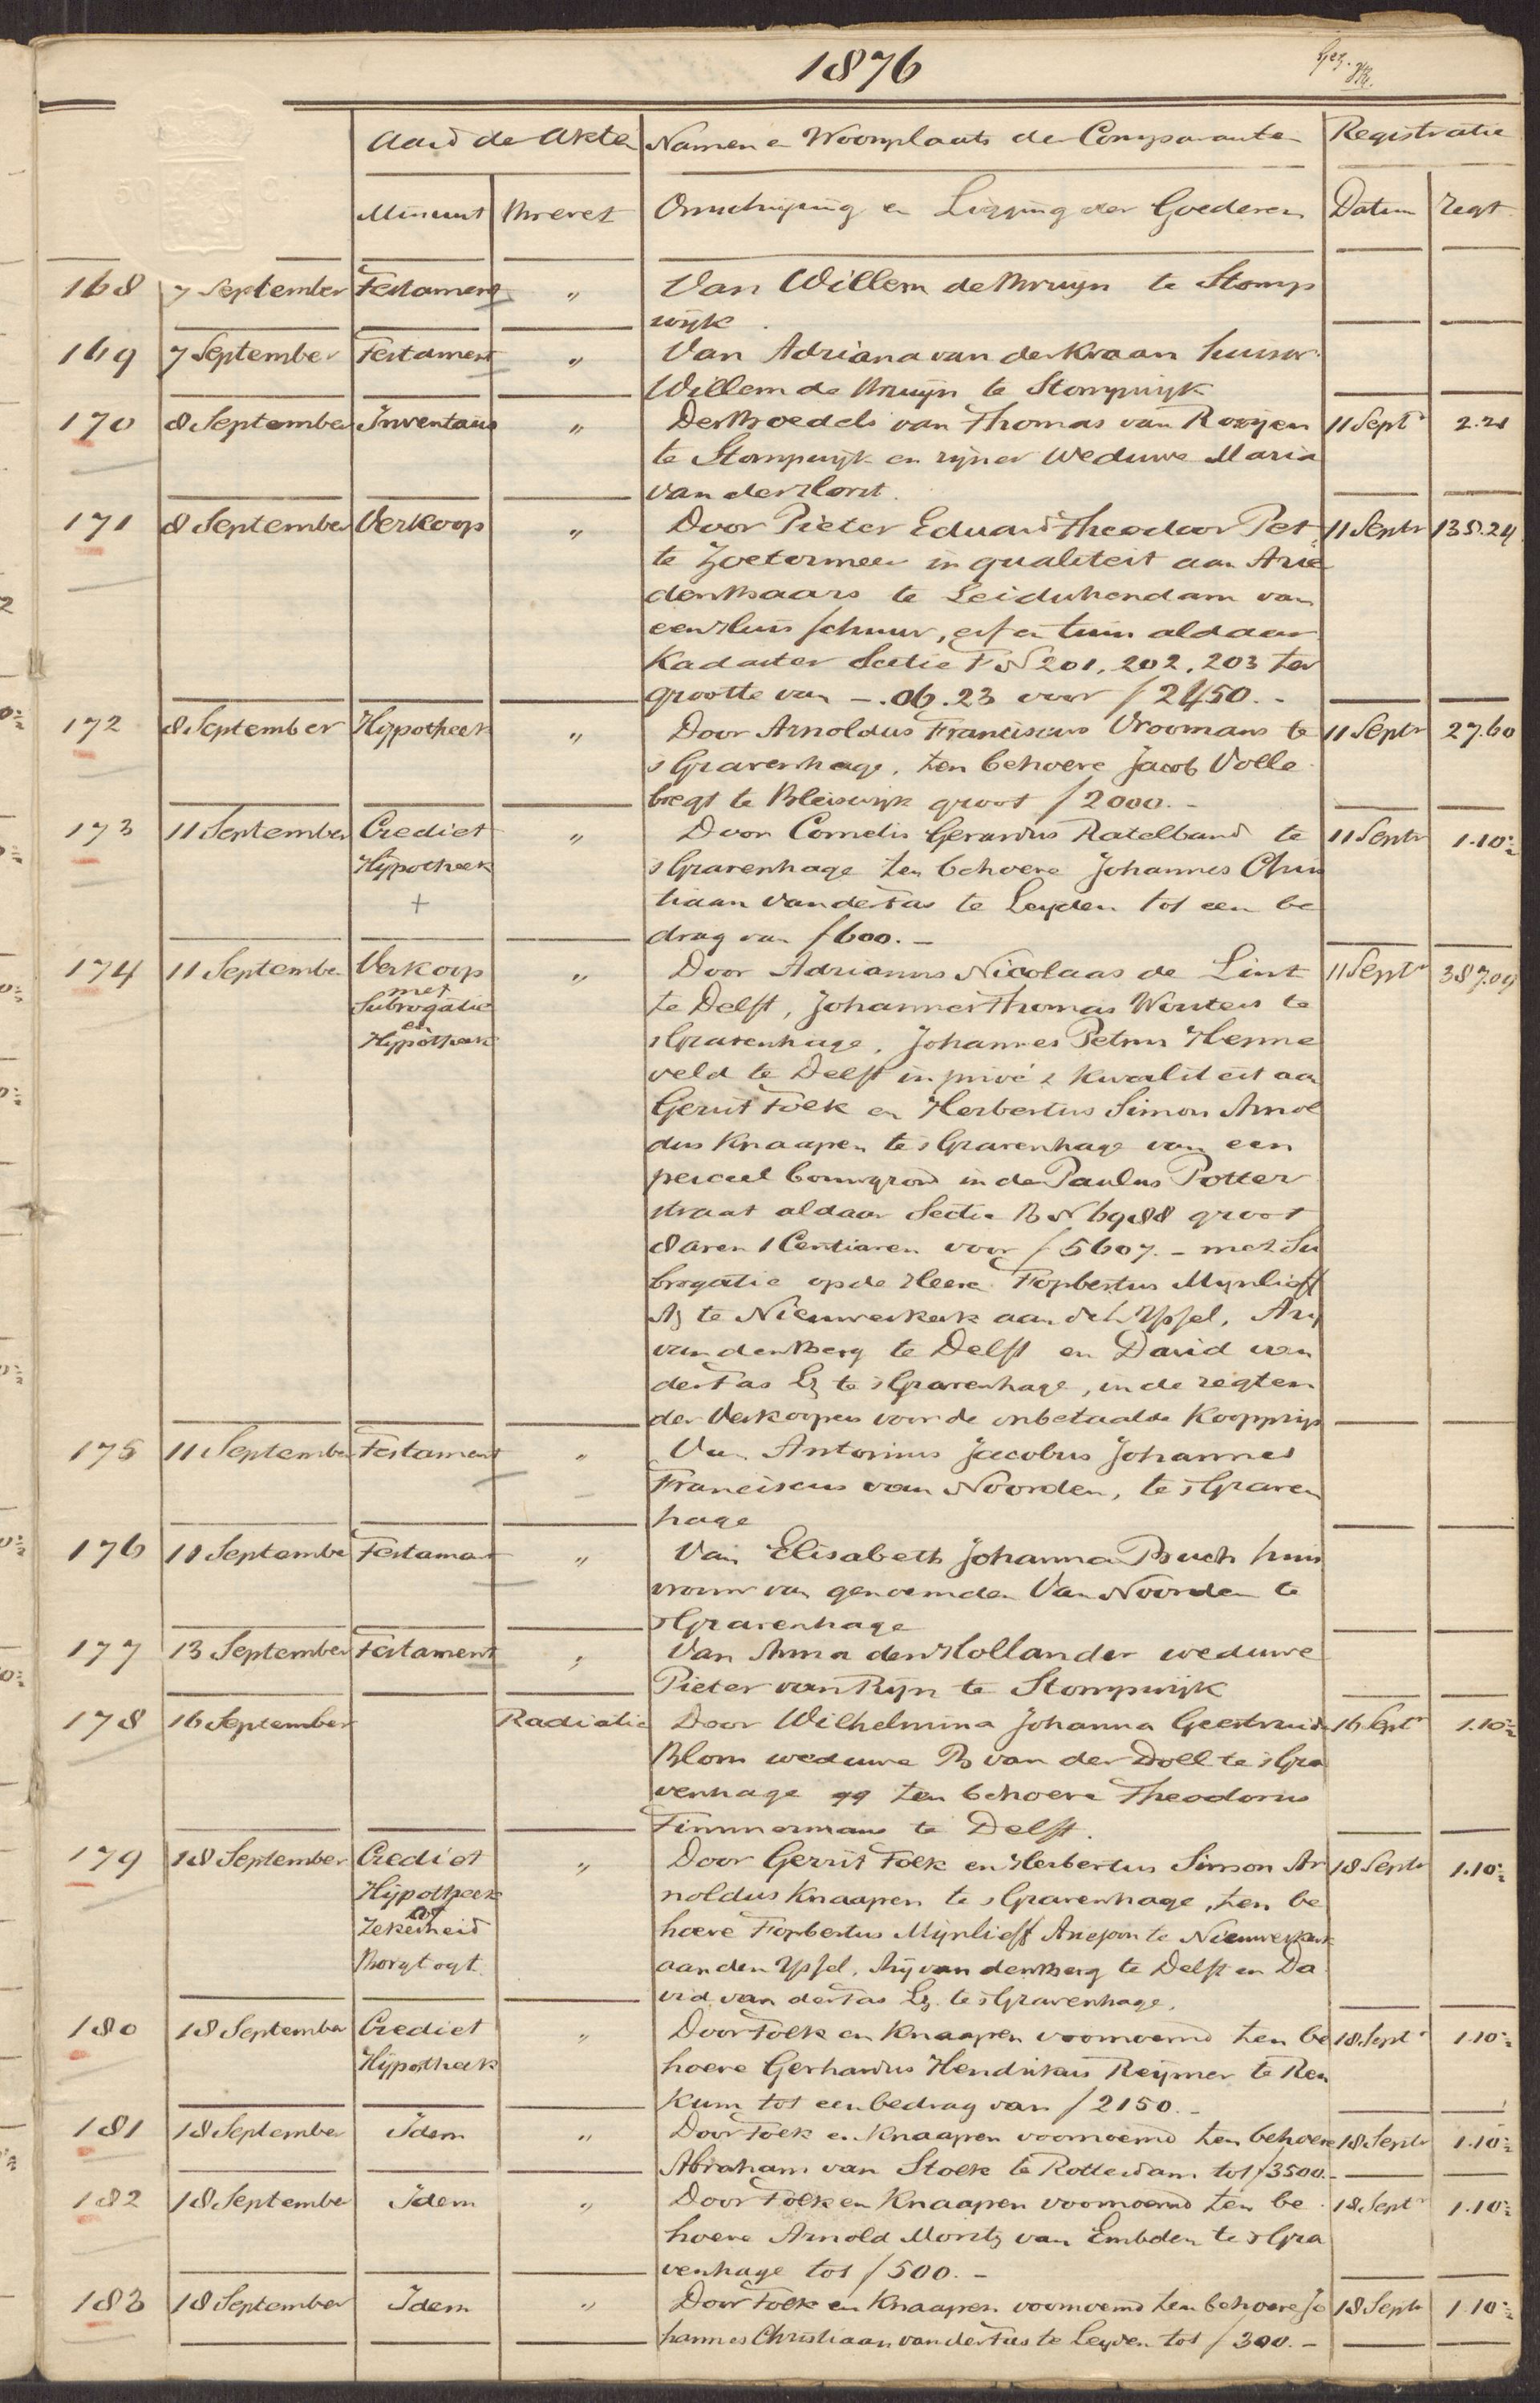 1876
Gez.
Aard de Akte Namen en Woonplaats der Comparanten Registratie
Minuut Brevet Omschrijving en Ligging der Goederen Datum Regt
168 7 September Testament " Van Willem de Bruijn te Stomp
wijk.
169 7 September Testament " Van Adriana van der Kraan huisvr.
Willem de Bruijn te Stompwijk
170 8 September Inventaris " Des Boedels van Thomas van Rooijen 11 Septr 2.21
te Stompwijk en zijner Weduwe Maria
van der Horst.
171 8 September Verkoop " Door Pieter Eduard Theodoor Pet 11 Septr 135.24
te Zoetermeer in qualiteit aan Arie
den Baars te Leidschendam van
een Huis schuur, erf en tuin aldaar
Kadaster Sectie F N 201, 202, 203 ter
grootte van -.06.23 voor ƒ 2450.-
172 8 September Hypotheek " Door Arnoldus Franciscus Vroomans te 11 Septr 27.60
s Gravenhage, ten behoeve Jacob Volle
bregt te Bleiswijk groot ƒ 2000.-
173 11 September Crediet " Door Cornelis Gerardus Ratelband te 11 Septr 1.10½
Hypotheek s Gravenhage ten behoeve Johannes Chris
+ tiaan van der Tas te Leyden tot een be
drag van ƒ 600.-
174 11 September Verkoop " Door Adrianus Nicolaas de Lint 11 Septr 387.09
met
Subrogatie te Delft, Johannes Thomas Wouters te
en
Hypotheek s Gravenhage, Johannes Petrus Henne
veld te Delft in privé & kwaliteit aan
Gerrit Folk en Herbertus Simon Arnol
dus Knaapen te s Gravenhage van een
perceel bouwgrond in de Paulus Potter
straat aldaar Sectie B N 6988 groot
8 aren 1 Centiaren voor ƒ 5607.- met Su
brogatie op de Heeren Fopbertus Mijnlieff
Az te Nieuwerkerk aan den Yssel, Arij
van den Berg te Delft en David van
der Tas Lz te s Gravenhage, in de regten
der Verkoopers voor de onbetaalde Koopprijs
175 11 September Testament " Van Antonius Jacobus Johannes
Franciscus van Noorden, te s Graven
hage
176 11 September Testament " Van Elisabeth Johanna Buch huis
vrouw van genoemden Van Noorden te
s Gravenhage
177 13 September Testament " Van Anna den Hollander weduwe
Pieter van Rijn te Stompwijk
178 16 September Radiatie Door Wilhelmina Johanna Geertruida 16 Septr 1.10½
Blom weduwe B van der Doll te s Gra
venhage qq ten behoeve Theodorus
Timmermans te Delft.
179 18 September Crediet " Door Gerrit Folk en Herbertus Simon Ar 18 Septr 1.10½
Hypotheek noldus Knaapen te s Gravenhage, ten be
tot
Zekerheid hoeve Fopbertus Mijnlieff Ariezoon te Nieuwerkerk
Borgtogt aan den Yssel, Arij van den Berg te Delft en Da
vid van der Tas Lz. te s Gravenhage.
180 18 September Crediet " Door Folk en Knaapen voornoemd ten be 18 Septr 1.10½
Hypotheek hoeve Gerhardus Hendrikus Reymer te Ren
kum tot een bedrag van ƒ 2150.-
181 18 September Idem " Door Folk en Knaapen voornoemd ten behoeve 18 Septr 1.10½
Abraham van Stolk te Rotterdam tot ƒ 3500.-
182 18 September Idem " Door Folk en Knaapen voornoemd ten be 18 Septr 1.10½
hoeve Arnold Moritz van Embden te s Gra
venhage tot ƒ 500.-
183 18 September Idem " Door Folk en Knaapen voornoemd ten behoeve Jo 18 Septr 1.10½
hannes Christiaan van der Tas te Leyden tot ƒ 300.-